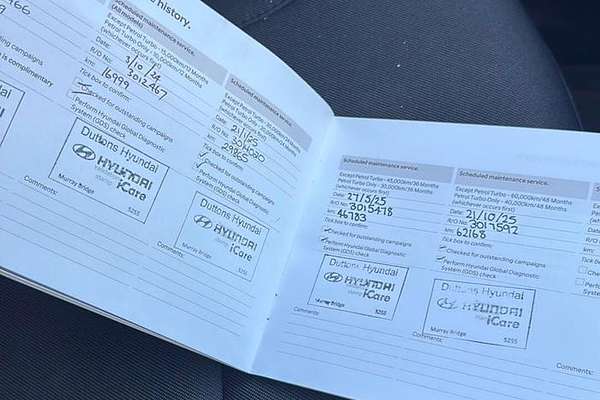 history.
966
campaigns
is complimentary
Scheduled maintenance service.
(All models)
Except Petrol Turbo - 15,000km/12 Months
Petrol Turbo Only - 10,000km/12 Months
(whichever occurs first)
Date:
R/O No: 3012467
km: 16999
Tick box to confirm:
Checked for outstanding campaigns
Perform Hyundai Global Diagnostic
System (GDS) check
Duttons Hyundai
HYUNDAI
iCare
Murray Bridge
Comments:
Scheduled maintenance service.
Except Petrol Turbo
Petrol Turbo Only
(whichever occurs first)
Date: 21/1/25
R/O No:
km: 29865
Tick box to confirm:
Checked for outstanding campaigns
Perform Hyundai Global Diagnostic
System (GDS) check
Duttons Hyundai
HYUNDAI
iCare
Murray Bridge 5255
Comments:
Scheduled maintenance service.
Except Petrol Turbo - 45,000km/36 Months
Petrol Turbo Only - 30,000km/36 Months
(whichever occurs first)
Date: 27/5/25
R/O No: 3015478
km: 46783
Tick box to confirm:
Checked for outstanding campaigns
Perform Hyundai Global Diagnostic
System (GDS) check
Duttons Hyundai
HYUNDAI
iCare
Murray Bridge 5255
Comments:
Scheduled maintenance service.
Except Petrol Turbo - 60,000km/48 Months
Petrol Turbo Only - 40,000km/48 Months
(whichever occurs first)
Date: 21/10/25
R/O No: 3017592
km: 62168
Tick box to confirm:
Checked for outstanding campaigns
Perform Hyundai Global Diagnostic
System (GDS) check
Duttons Hyundai
HYUNDAI
iCare
Murray Bridge 5255
Comments:
Except
Petrol
(which
Date:
R/O No
km:
Tick bo
Che
Perfo
Syste
Comm